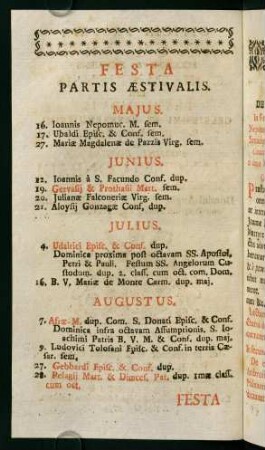 FESTA
PARTIS ÆSTIVALIS.
MAJUS.
16. Ioannis Nepomuc. M. sem.
17. Ubaldi Episc. & Conf. sem.
27. Mariæ Magdalenæ de Pazzis Virg. sem.
JUNIUS.
12. Ioannis à S. Facundo Conf. dup.
19. Gervasij & Prothasii Mart. sem.
20. Julianæ Falconeriæ Virg. sem.
21. Aloysij Gonzagæ Conf, dup.
JULIUS.
4. Udalrici Episc. & Conf. dup.
Dominica proxima post octavam SS. Apostol.
Petri & Pauli, Festum SS. Angelorum Cu-
stodum. dup. 2. class. cum oct. com. Dom.
16. B. V, Mariæ de Monte Carm. dup. maj.
AUGUSTUS.
7. Afræ M. dup. Com. S. Donati Episc. & Conf.
Dominica infra octavam Assumptionis. S. Io-
achimi Patris B. V. M. & Conf. dup. maj.
9. Ludovici Tolosani Episc. & Conf. in terris Cæ-
sar. sem.
27. Gebhardi Episc. & Conf. dup.
28. Pelagii Mart. & Diœces. Pat. dup. 1mæ class.
cum oct.
FESTA